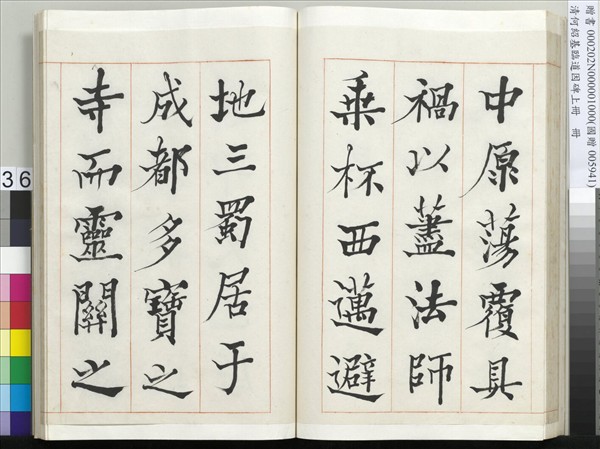 中原蕩覆具
禍以藎法師
乗杯西邁避
地三蜀居于
成都多寶之
寺而靈關之
贈書 000202N000001000(國贈 005941)
清何紹基臨道因碑上冊 冊
36